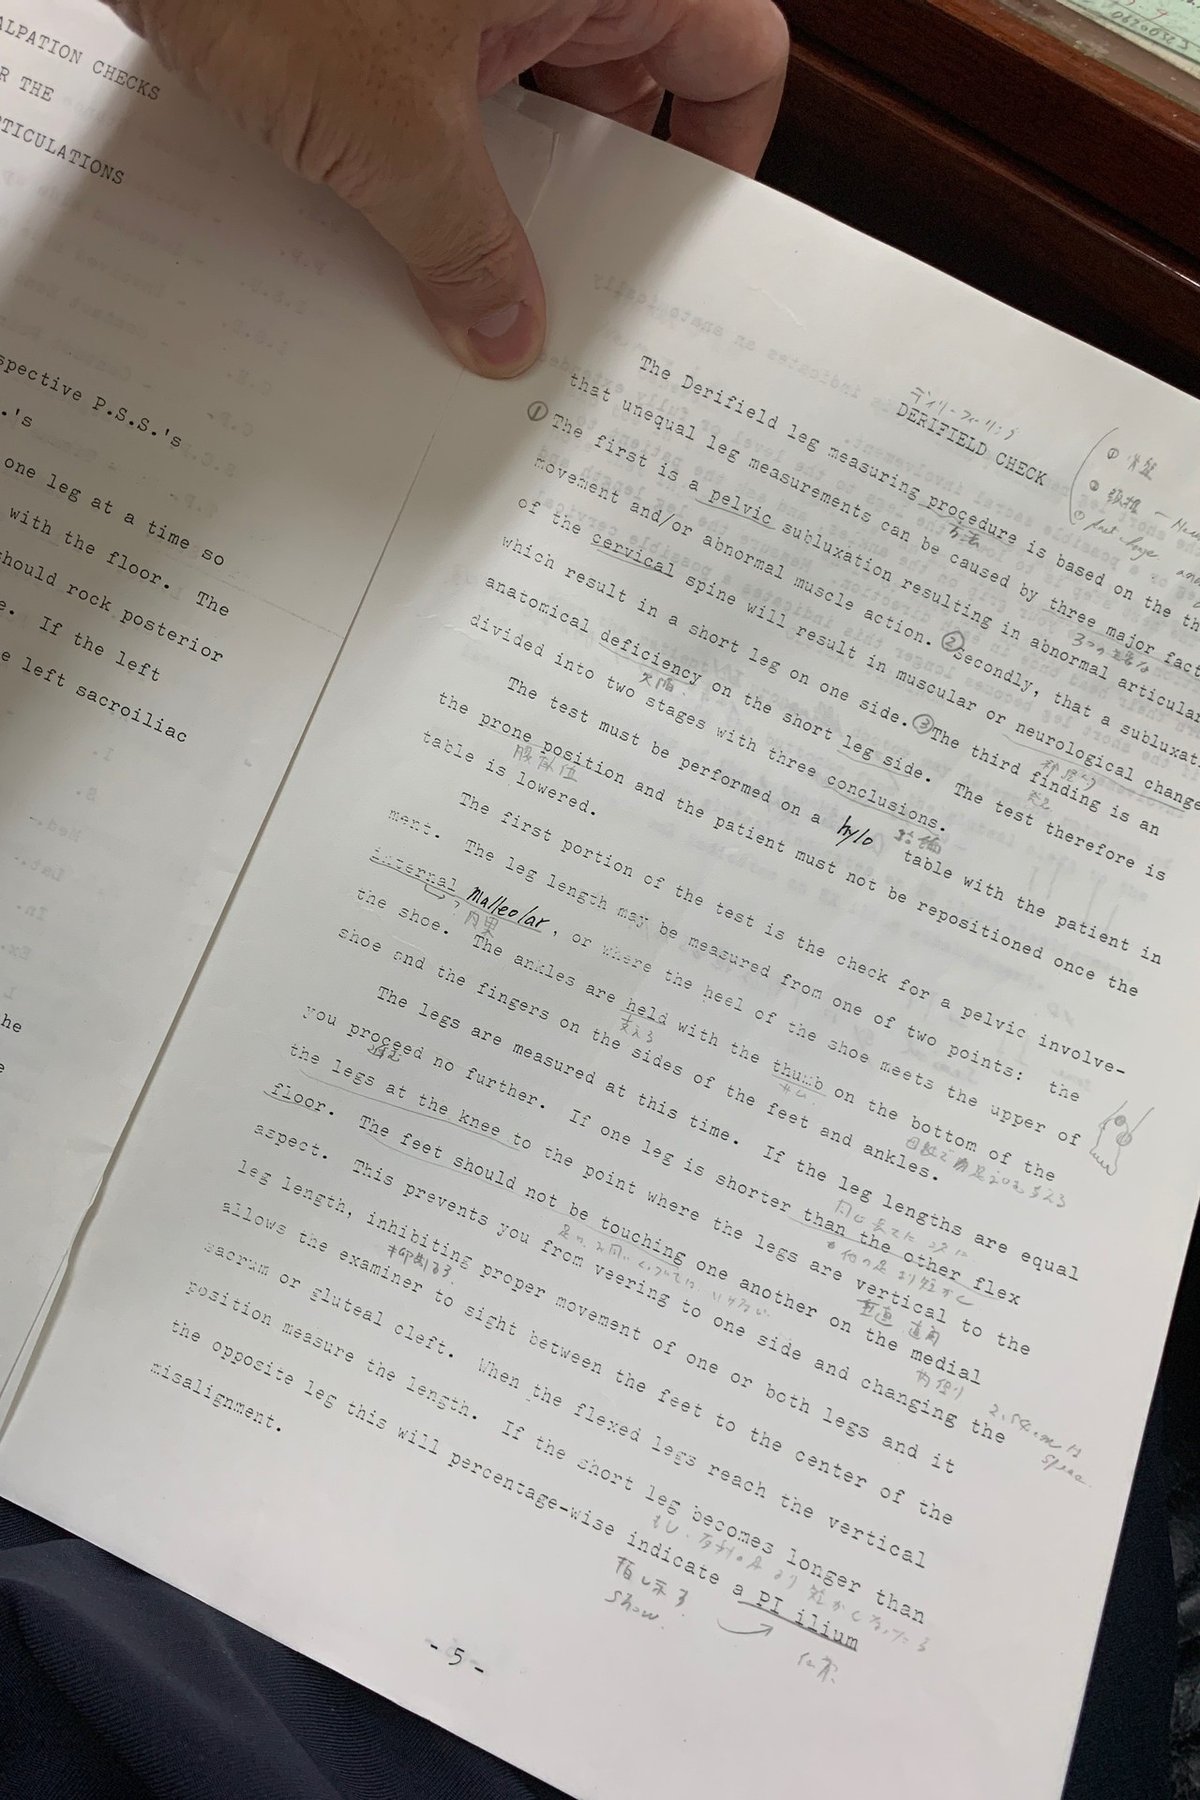 ALPATION CHECKS
R THE
TICULATIONS
spective P.S.S.'s
.'s
one leg at a time so
with the floor. The
hould rock posterior
e. If the left
e left sacroiliac
he
e
ディリーフィールド
DERIFIELD CHECK
The Derifield leg measuring procedure is based on the th
方法
that unequal leg measurements can be caused by three major fact
3つの主な
① The first is a pelvic subluxation resulting in abnormal articular
movement and/or abnormal muscle action. ② Secondly, that a subluxat
of the cervical spine will result in muscular or neurological change
which result in a short leg on one side. ③ The third finding is an
anatomical deficiency on the short leg side. The test therefore is
欠陥
divided into two stages with three conclusions.
結論
The test must be performed on a hylo table with the patient in
the prone position and the patient must not be repositioned once the
table is lowered.
The first portion of the test is the check for a pelvic involve-
ment. The leg length may be measured from one of two points: the
internal Malleolar, or where the heel of the shoe meets the upper of
内果
the shoe. The ankles are held with the thumb on the bottom of the
支える
shoe and the fingers on the sides of the feet and ankles.
The legs are measured at this time. If the leg lengths are equal
you proceed no further. If one leg is shorter than the other flex
the legs at the knee to the point where the legs are vertical to the
垂直 直角
floor. The feet should not be touching one another on the medial
aspect. This prevents you from veering to one side and changing the
leg length, inhibiting proper movement of one or both legs and it
allows the examiner to sight between the feet to the center of the
sacrum or gluteal cleft. When the flexed legs reach the vertical
position measure the length. If the short leg becomes longer than
the opposite leg this will percentage-wise indicate a PI ilium
指し示す
show.
misalignment.
- 5 -